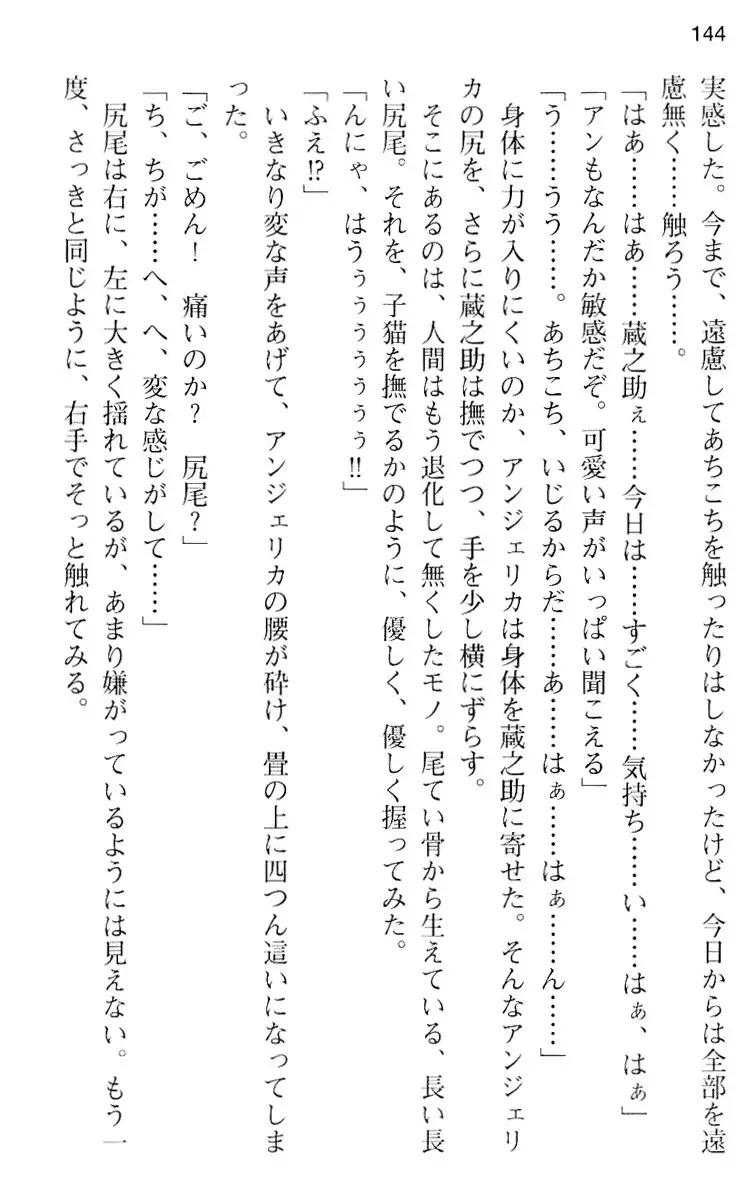 144
実感した。今まで、遠慮してあちこちを触ったりはしなかったけど、今日からは全部を遠
慮無く……触ろう……。
「はあ……はあ……蔵之助ぇ……今日は……すごく……気持ち……い……はぁ、はぁ」
「アンもなんだか敏感だぞ。可愛い声がいっぱい聞こえる」
「う……うう……。あちこち、いじるからだ……あ……はぁ……はぁ……ん……」
身体に力が入りにくいのか、アンジェリカは身体を蔵之助に寄せた。そんなアンジェリ
カの尻を、さらに蔵之助は撫でつつ、手を少し横にずらす。
そこにあるのは、人間はもう退化して無くしたモノ。尾てい骨から生えている、長い長
い尻尾。それを、子猫を撫でるかのように、優しく、優しく握ってみた。
「んにゃ、はうぅぅぅぅぅぅぅ!!」
「ふえ!?」
いきなり変な声をあげて、アンジェリカの腰が砕け、畳の上に四つん這いになってしま
った。
「ご、ごめん！　痛いのか？　尻尾？」
「ち、ちが……へ、へ、変な感じがして……」
尻尾は右に、左に大きく揺れているが、あまり嫌がっているようには見えない。もう一
度、さっきと同じように、右手でそっと触れてみる。